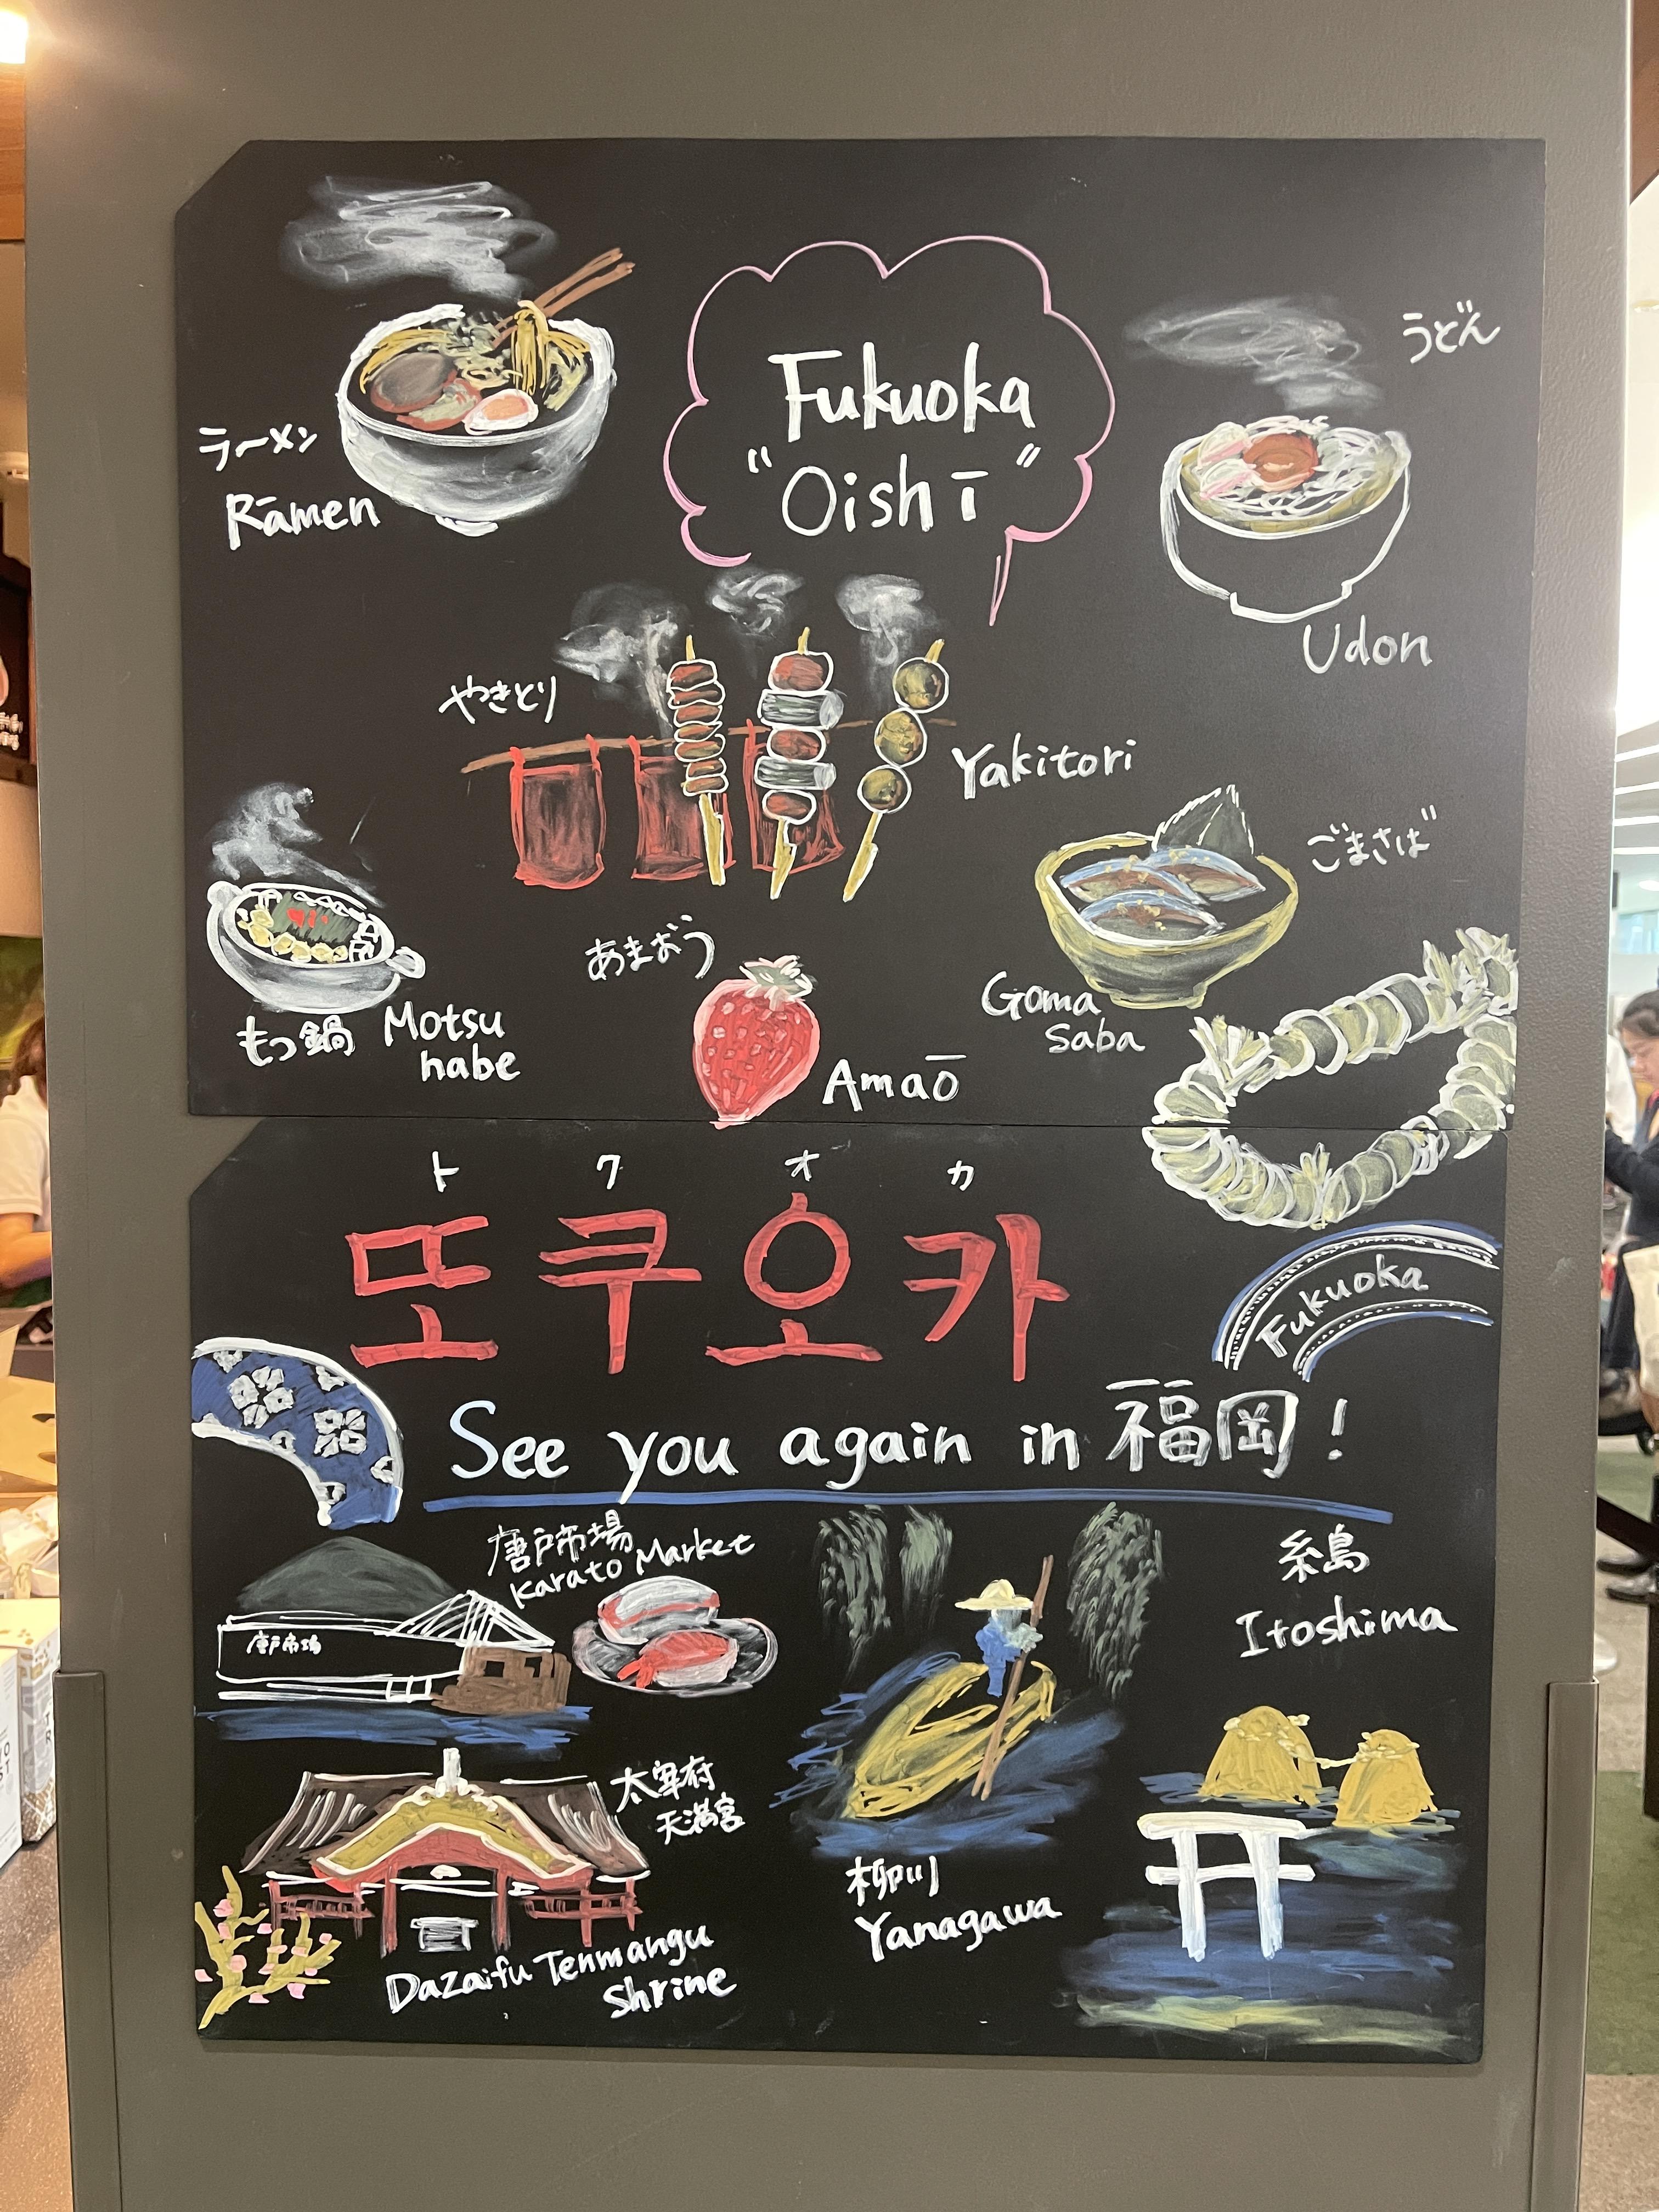 ラーメン
Rāmen
Fukuoka
"Oishī"
うどん
Udon
やきとり
Yakitori
ごまさば
Goma
saba
もつ鍋
Motsu
nabe
あまおう
Amaō
ト ク オ カ
또쿠오카
Fukuoka
See you again in 福岡!
唐戸市場
Karato Market
唐戸市場
糸島
Itoshima
太宰府
天満宮
Dazaifu Tenmangu
Shrine
柳川
Yanagawa